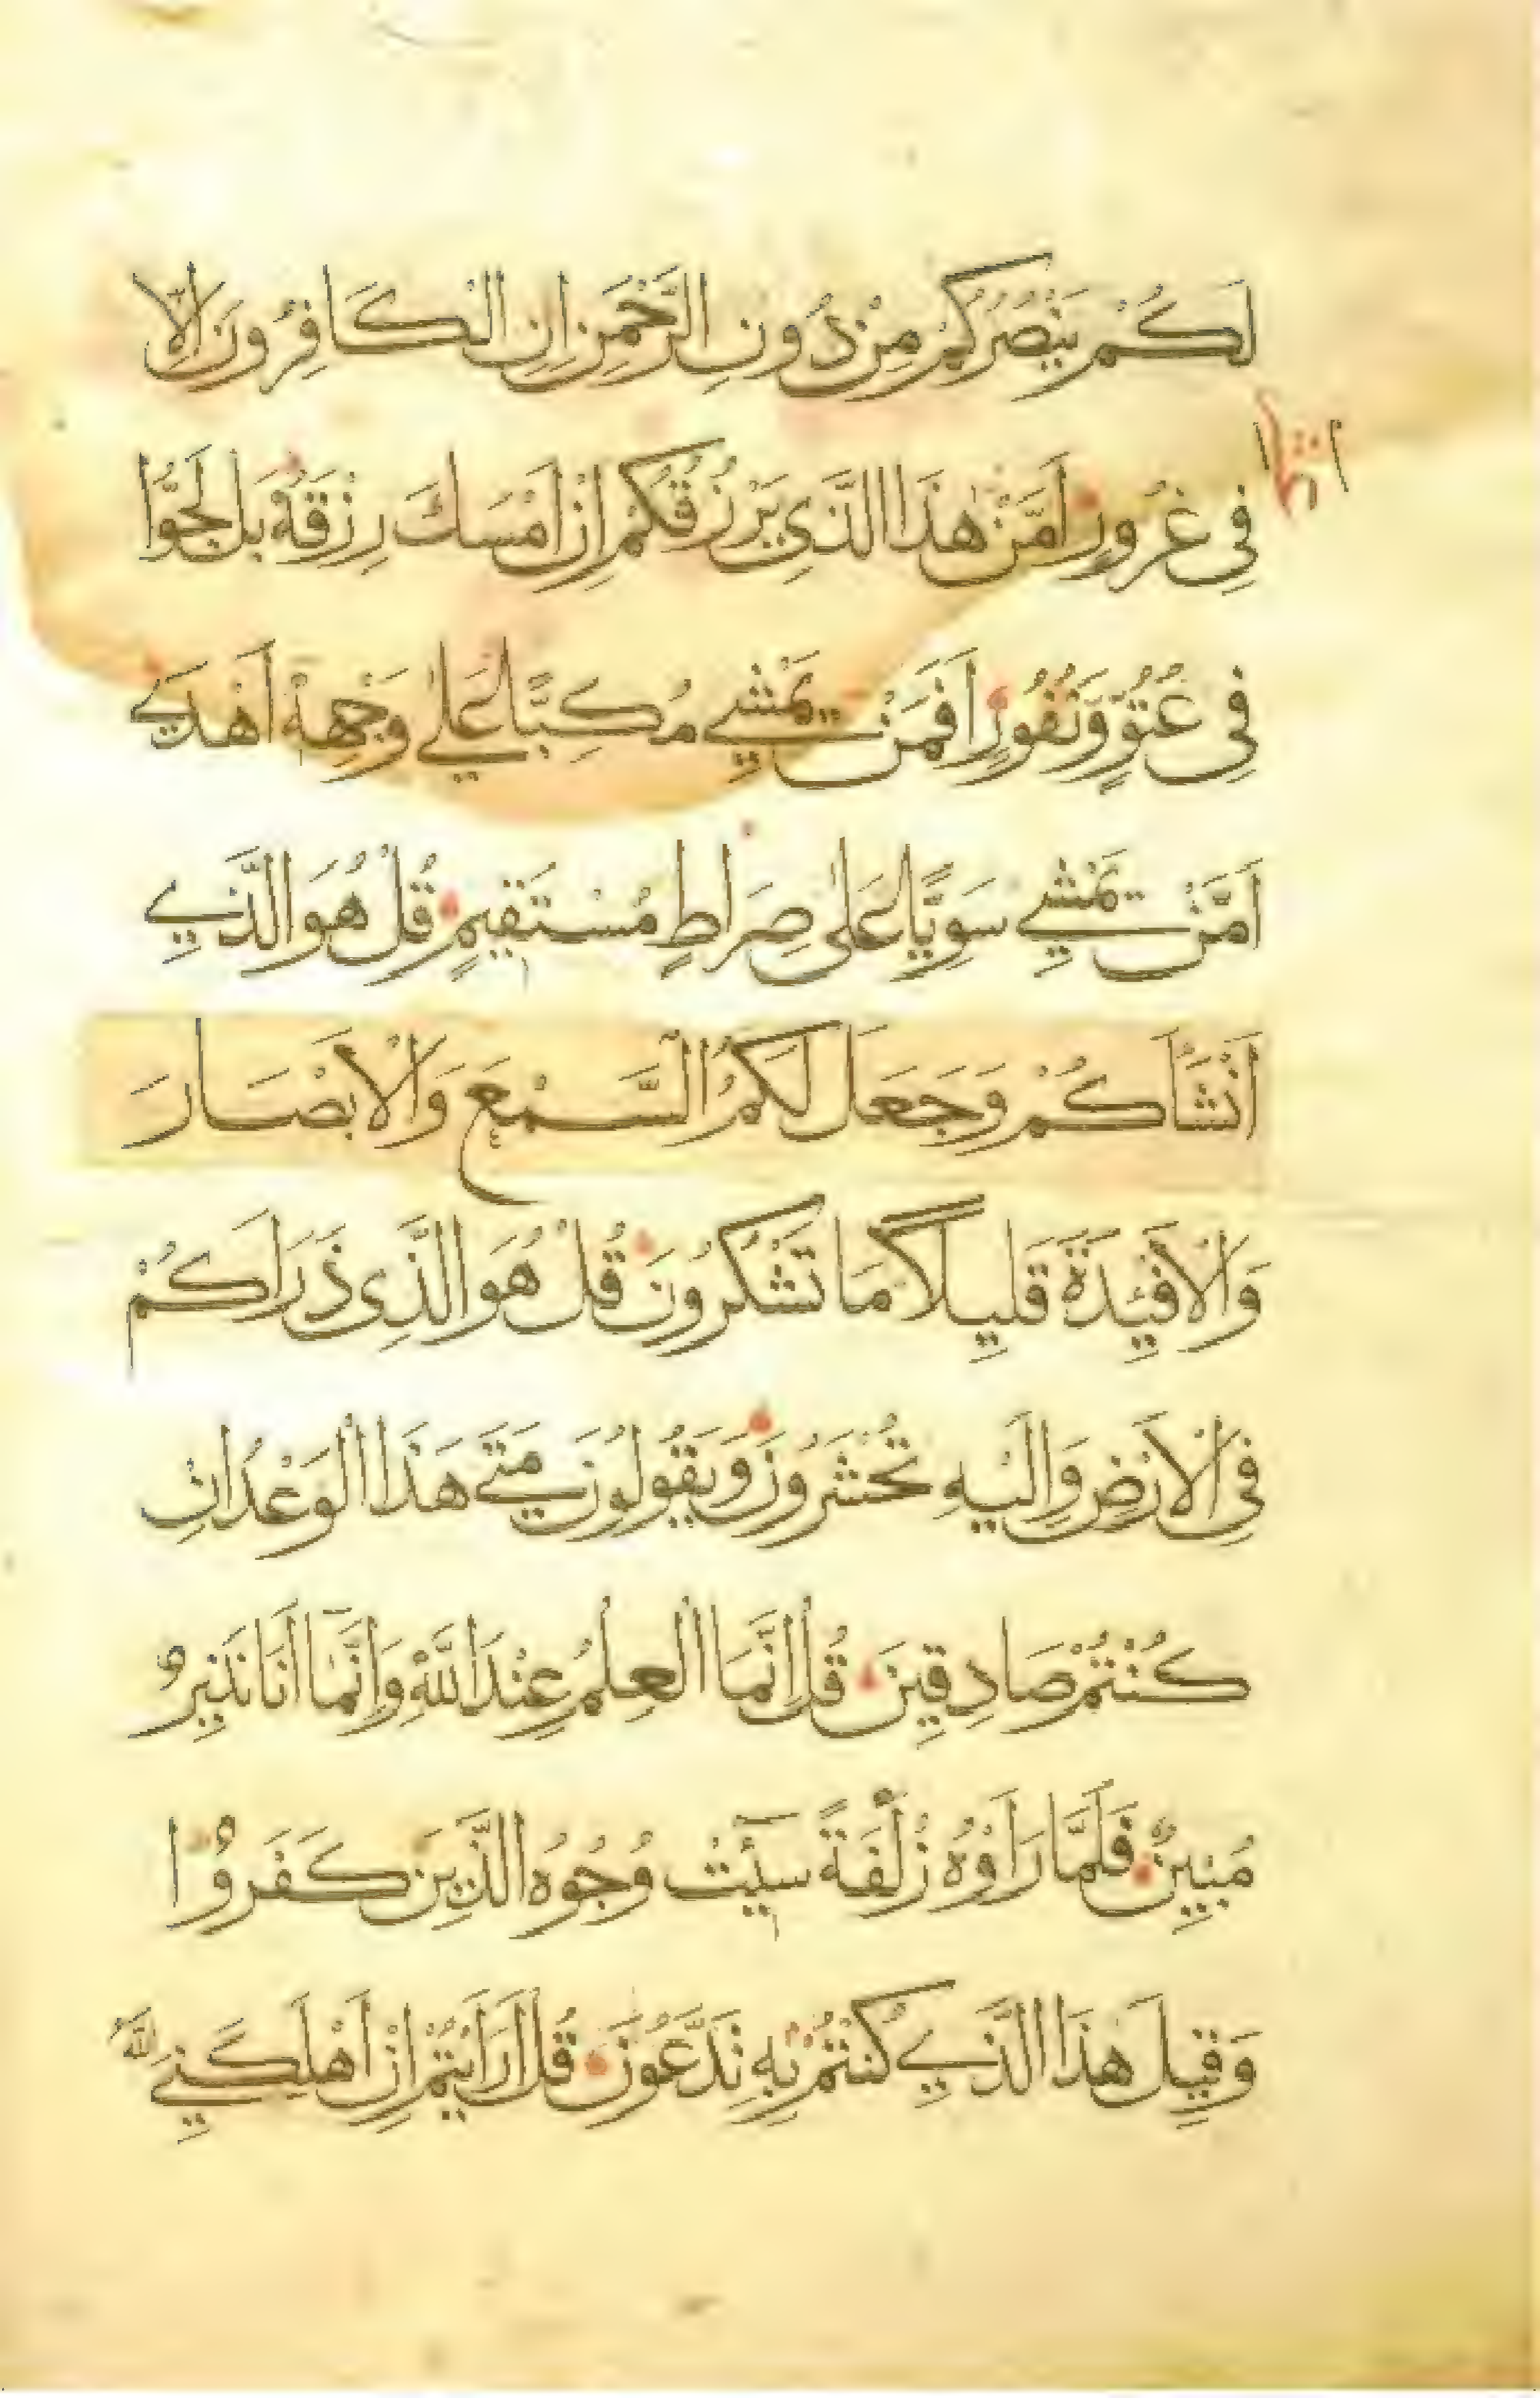 لَكُمْ يَنْصُرُكُمْ مِنْ دُونِ الرَّحْمٰنِ اِنِ الْكَافِرُونَ اِلَّا
فِي غُرُورٍ اَمَّنْ هٰذَا الَّذِي يَرْزُقُكُمْ اِنْ اَمْسَكَ رِزْقَهُ بَلْ لَجُّوا
فِي عُتُوٍّ وَنُفُورٍ اَفَمَنْ يَمْشِي مُكِبًّا عَلٰى وَجْهِهِ اَهْدٰى
اَمَّنْ يَمْشِي سَوِيًّا عَلٰى صِرَاطٍ مُسْتَقِيمٍ قُلْ هُوَ الَّذِي
اَنْشَاَكُمْ وَجَعَلَ لَكُمُ السَّمْعَ وَالْاَبْصَارَ
وَالْاَفْئِدَةَ قَلِيلًا مَا تَشْكُرُونَ قُلْ هُوَ الَّذِي ذَرَاَكُمْ
فِي الْاَرْضِ وَاِلَيْهِ تُحْشَرُونَ وَيَقُولُونَ مَتٰى هَذَا الْوَعْدُ اِنْ
كُنْتُمْ صَادِقِينَ قُلْ اِنَّمَا الْعِلْمُ عِنْدَ اللّٰهِ وَاِنَّمَا اَنَا نَذِيرٌ
مُبِينٌ فَلَمَّا رَاَوْهُ زُلْفَةً سِيٓئَتْ وُجُوهُ الَّذِينَ كَفَرُوا
وَقِيلَ هٰذَا الَّذِي كُنْتُمْ بِهِ تَدَّعُونَ قُلْ اَرَاَيْتُمْ اِنْ اَهْلَكَنِيَ اللّٰهُ